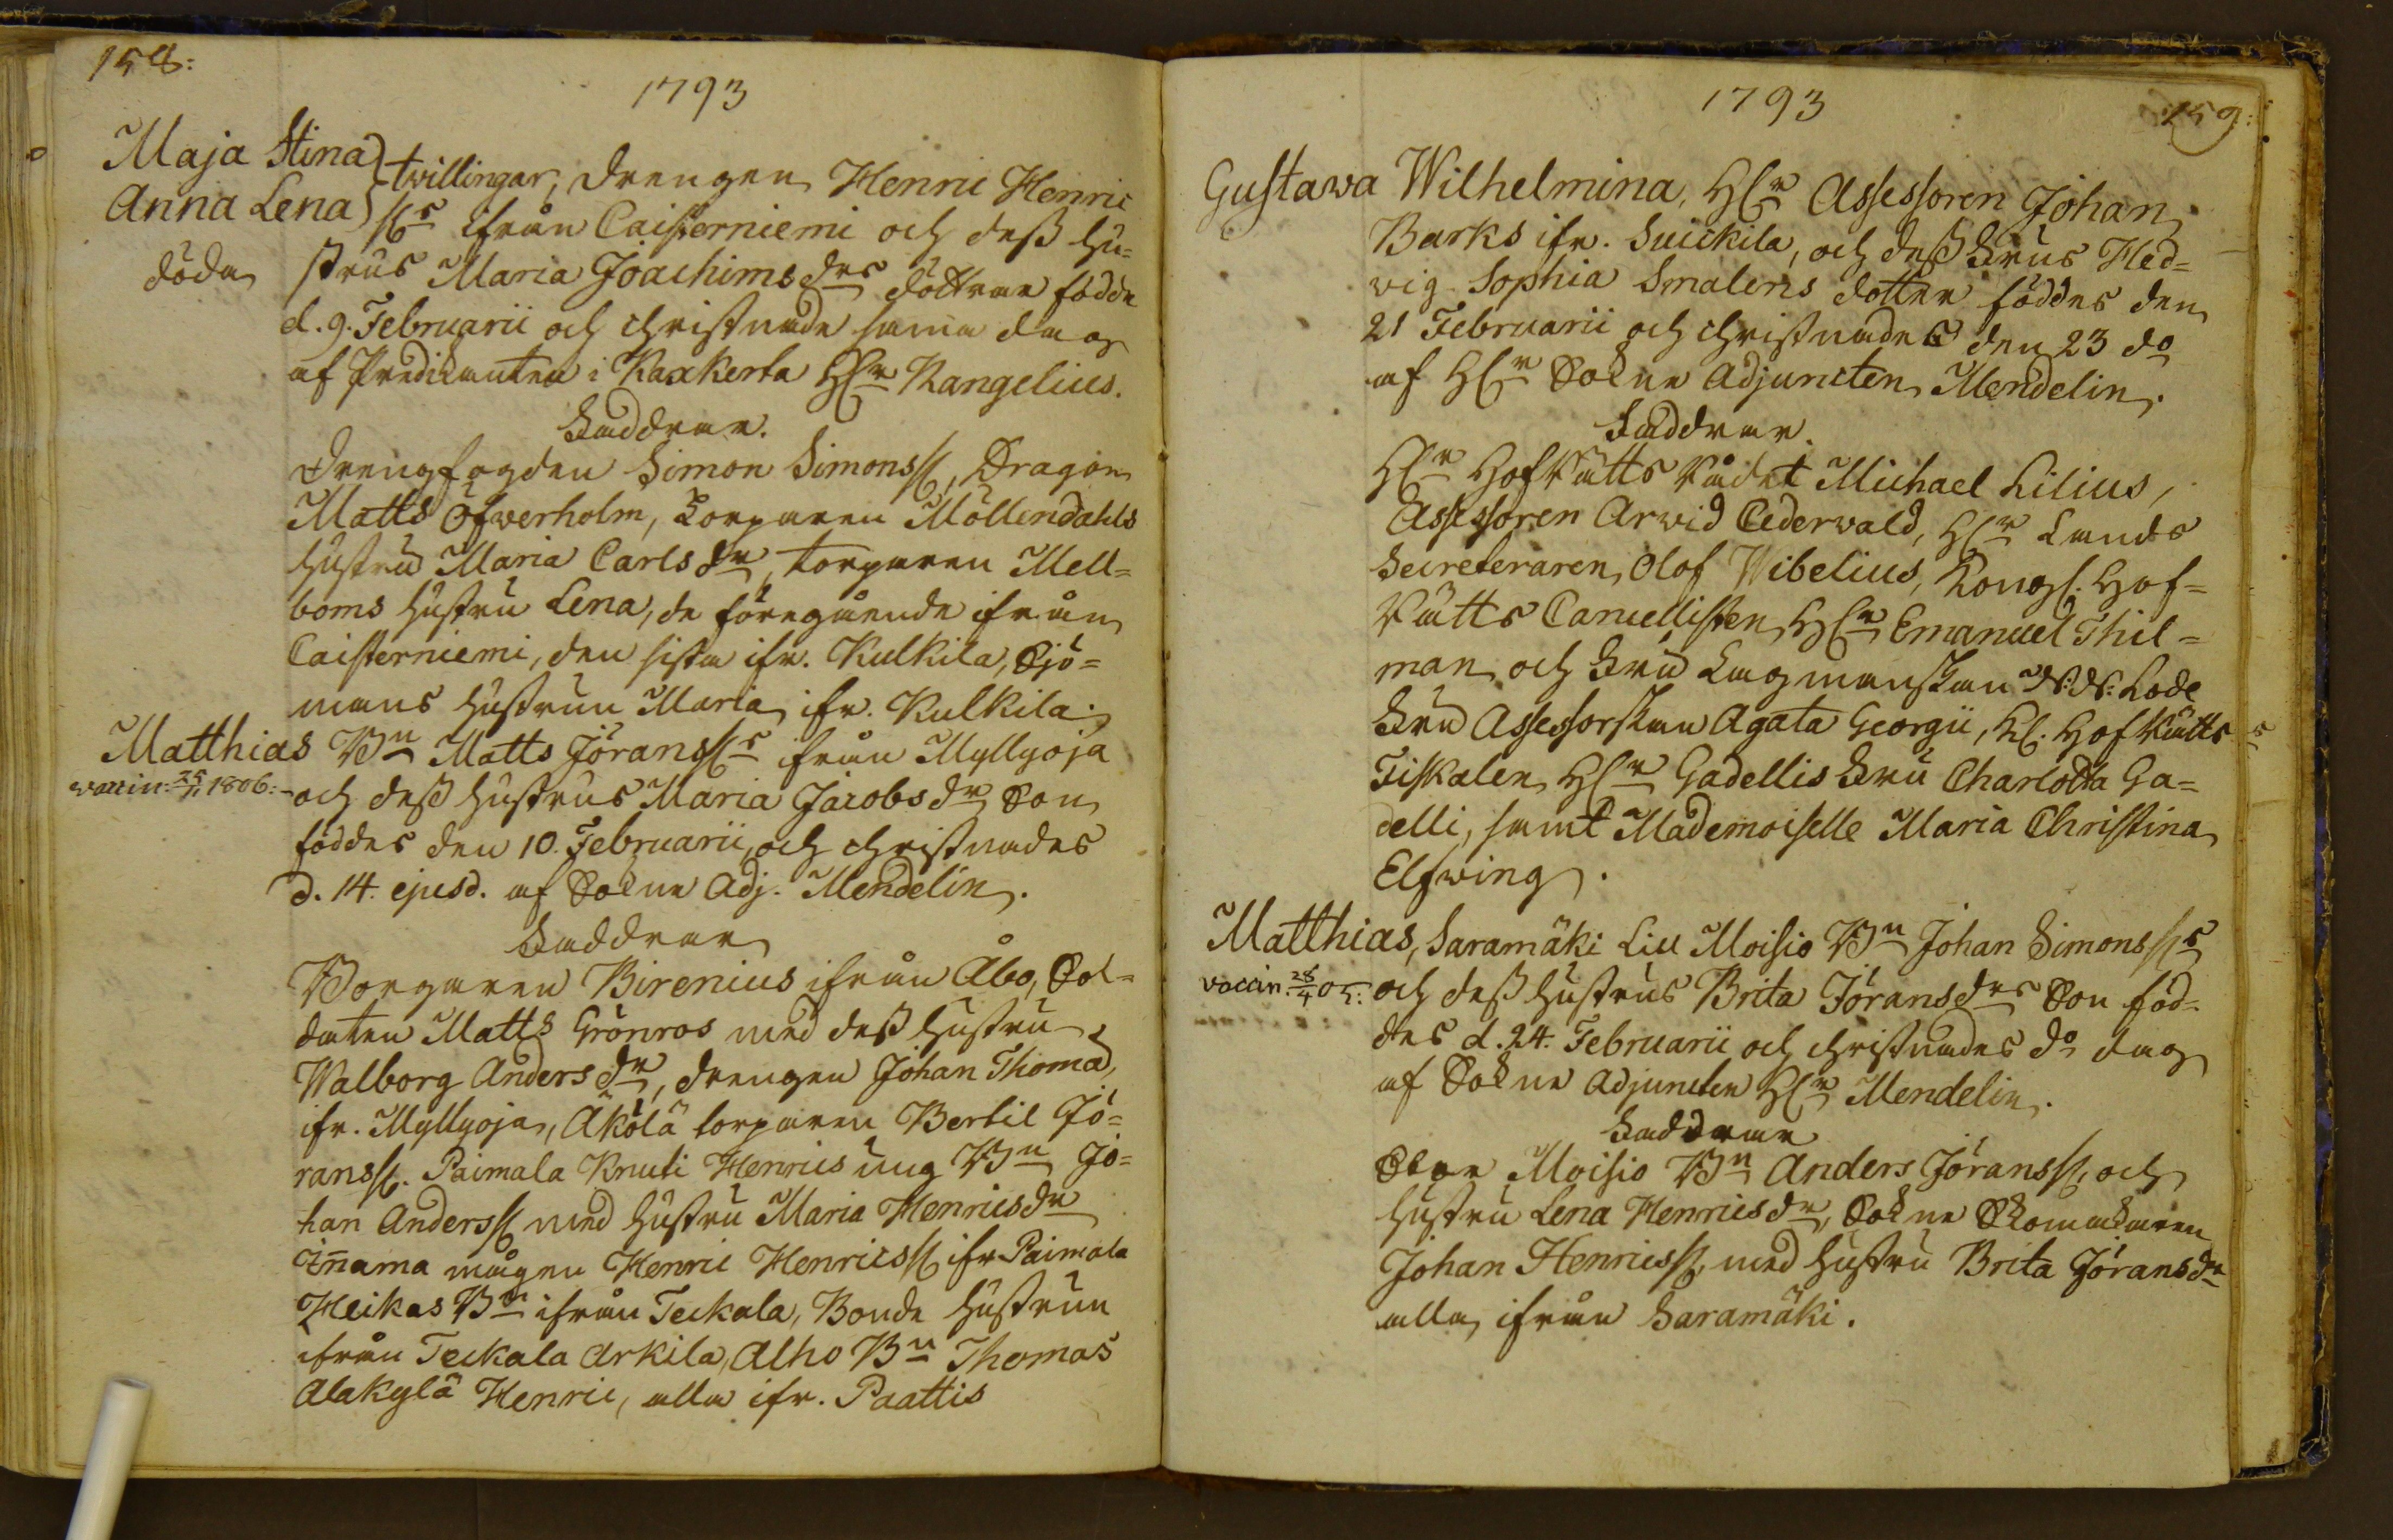 158:
1793
Maja Stina
Anna Lena
döda
twillingar, drengen Henric Henric
ss:s ifrån Caisterniemi och dess hu-
strus Maria Joachimsdrs döttrar födde
d. 9. Februarii och christnade samma dag
af Predicanten i Kaxkerta H:r Rangelius.
Faddrar.
Drengfogden Simon Simonss:, Dragon
Matts Öfwerholm, Torparen Möllendahls
hustru Maria Carlsdr, torparen Mell-
boms hustru Lena, de föregående ifrån
Caisterniemi, den sista ifr. Kulkila, Sjö-
mans hustrun Maria ifr. Kulkila.
Matthias Bn Matts Jöranss:s ifrån Myllyoja
vaccin: 25/11 1806:
och dess hustrus Maria Jacobsdr Son
föddes den 10. Februarii, och christnades
d. 14. ejusd. af Sokne Adj. Mendelin.
Faddrar
Borgaren Birenius ifrån Åbo, Sol-
daten Matts Grönros med dess hustru
Walborg Andersdr, drengen Johan Thomas,
ifr. Myllyoja, Äkölä torparen Bertil Jö-
ranss:. Paimala Knuti Henrics ung Bn Jo-
han Anderss: med hustru Maria Henricsdr
Innama mågen Henric Henricss: ifr Paimala
Heikas Bn ifrån Teckala, Bonde hustrun
ifrån Teckala Arkila, Alho Bn Thomas
Alakylä Henric, alla ifr. Paattis
1793
159:
Gustawa Wilhelmina, H:r Assessoren Johan
Barks ifr. Suickila, och dess Frus Hed-
vig Sophia Smalens dotter föddes den
21 Februarii och christnades den 23 do
af H:r Sokne Adjuncten Mendelin.
Faddrar.
H:r HofRätts Rådet Michael Lilius,
Assessoren Arwid Cederwald, H:r Lands
Secreteraren Olof Wibelius, Kongl. Hof-
Rätts Cancellisten H:r Emanuel Thil-
man och Fru Lagmanskan Lode
Fru Assessorskan Agata Georgii, Kl. HofRätts
Fiskalen H:r Gadellis Fru Charlotta Ga-
delli, samt Mademoiselle Maria Christina
Elfwing.
Matthias, Saramäki Lill Moisio Bn Johan Simonss:s
vaccin. 28/4 05:
och dess hustrus Brita Jöransdrs Son föd-
des d. 24. Februarii och christnades do dag
af Sokne Adjuncten H:r Mendelin.
Faddrar
Stor Moisio Bn Anders Jöranss: och
hustru Lena Henricsdr, Sokne Skomakaren
Johan Henricss: med hustru Brita Jöransdr
alla ifrån Saramäki.